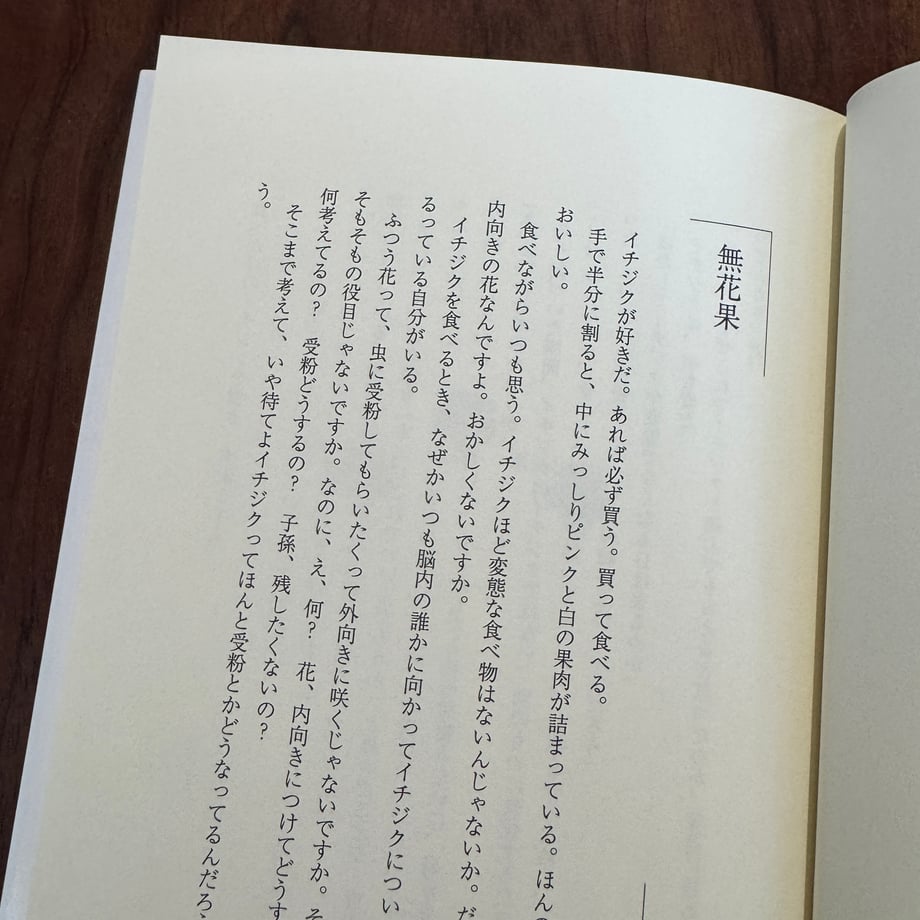 無花果
イチジクが好きだ。あれば必ず買う。買って食べる。
手で半分に割ると、中にみっしりピンクと白の果肉が詰まっている。ほんの
おいしい。
食べながらいつも思う。イチジクほど変態な食べ物はないんじゃないか。だ
内向きの花なんですよ。おかしくないですか。
イチジクを食べるとき、なぜかいつも脳内の誰かに向かってイチジクについ
るっている自分がいる。
ふつう花って、虫に受粉してもらいたくって外向きに咲くじゃないですか。そ
そもそもの役目じゃないですか。なのに、え、何? 花、内向きにつけてどうす
何考えてるの? 受粉どうするの? 子孫、残したくないの?
そこまで考えて、いや待てよイチジクってほんと受粉とかどうなってるんだろ
う。